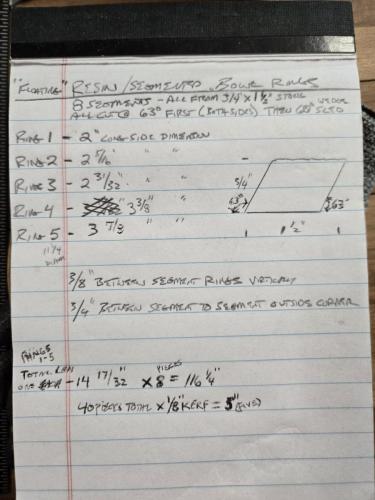 "Floating" Resin/Segmented Bowl Rings
8 Segments - All from 3/4" x 1 1/2" Stock
All cut @ 63° First (Both Sides) Then
Ring 1 - 2" Long-Side Dimension
Ring 2 - 2 7/16 " "
Ring 3 - 2 31/32" " "
Ring 4 - 3 3/8" " "
Ring 5 - 3 7/8 " "
11 1/4
Diam
3/4"
63°
63°
1 1/2"
3/8" Between Segment Rings Vertically
3/4" Between Segment to Segment Outside Corner
Rings
1-5
Total
one - 14 17/32" x 8 pieces = 116 1/4"
40 pieces total x 1/8" kerf = 5"